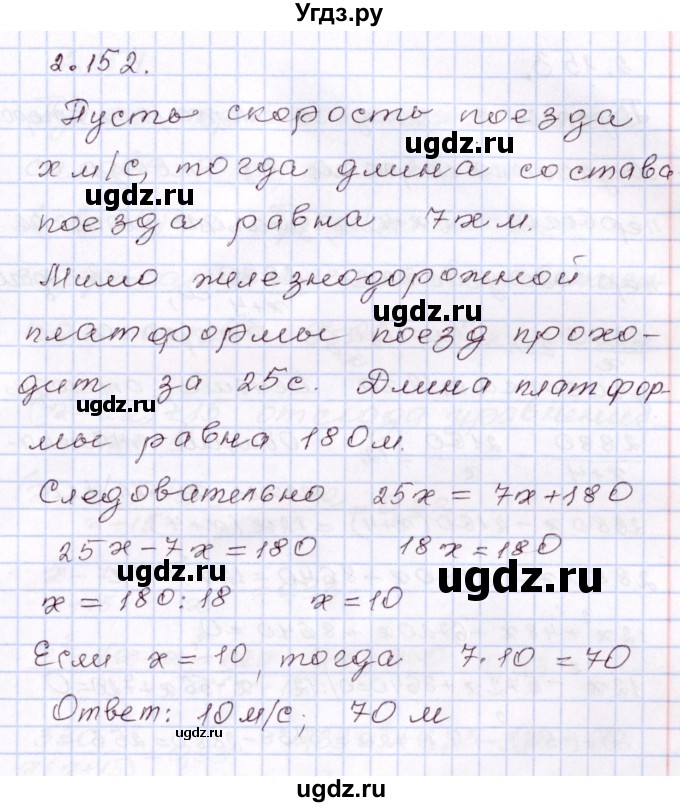 Угдз.ру
2.152.
Пусть скорость поезда
ugdz.ru
х м/с, тогда длина состава
ugdz.ru
поезда равна 7х м.
Мимо железнодорожной
ugdz.ru
платформы поезд прохо-
дит за 25с. Длина платфор-
ugdz.ru
мы равна 180м.
Следовательно 25х = 7х+180
25х-7х=180 18х=180
ugdz.ru ugdz.ru
х = 180:18 х=10
Если х=10, тогда 7·10=70
Ответ: 10м/с; 70 м
ugdz.ru
ugdz.ru